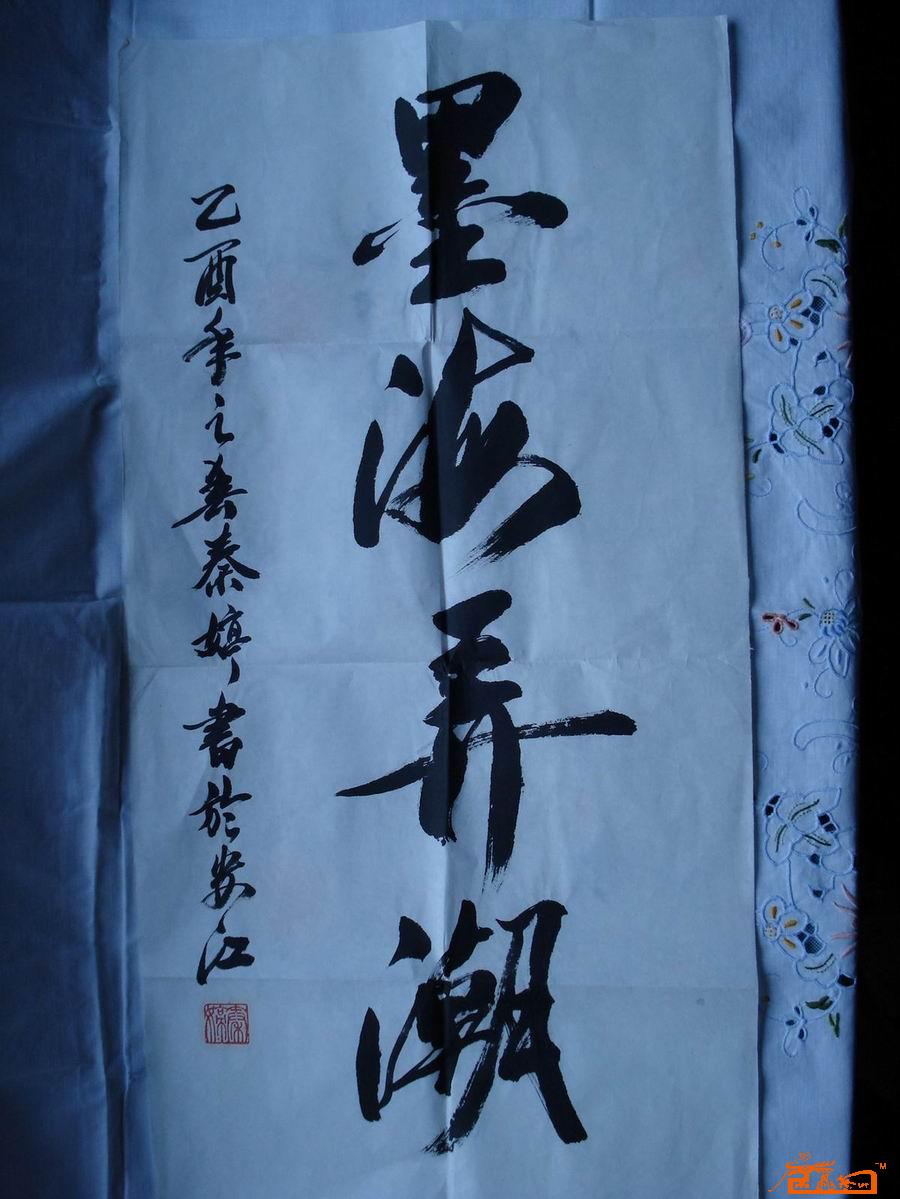 墨海弄潮
乙酉年之春秦婷書於安江